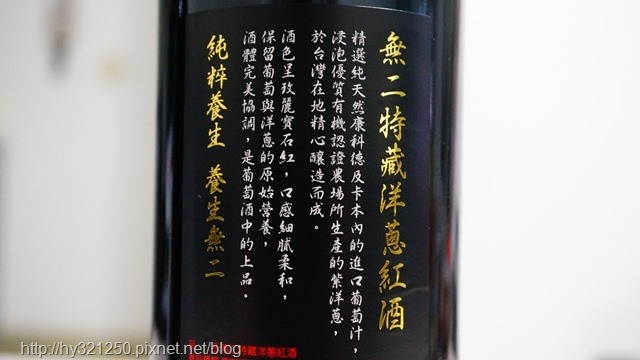 無二特藏洋蔥紅酒
精選純天然康科德及卡本內的進口葡萄汁，
浸泡優質有機認證農場所生產的紫洋蔥，
於台灣在地精心釀造而成。
酒色呈玫麗寶石紅，口感細膩柔和，
保留葡萄與洋蔥的原始營養，
酒體完美協調，是葡萄酒中的上品。
純粹養生 養生無二
特藏洋蔥紅酒
http://hy321250.pixnet.net/blog